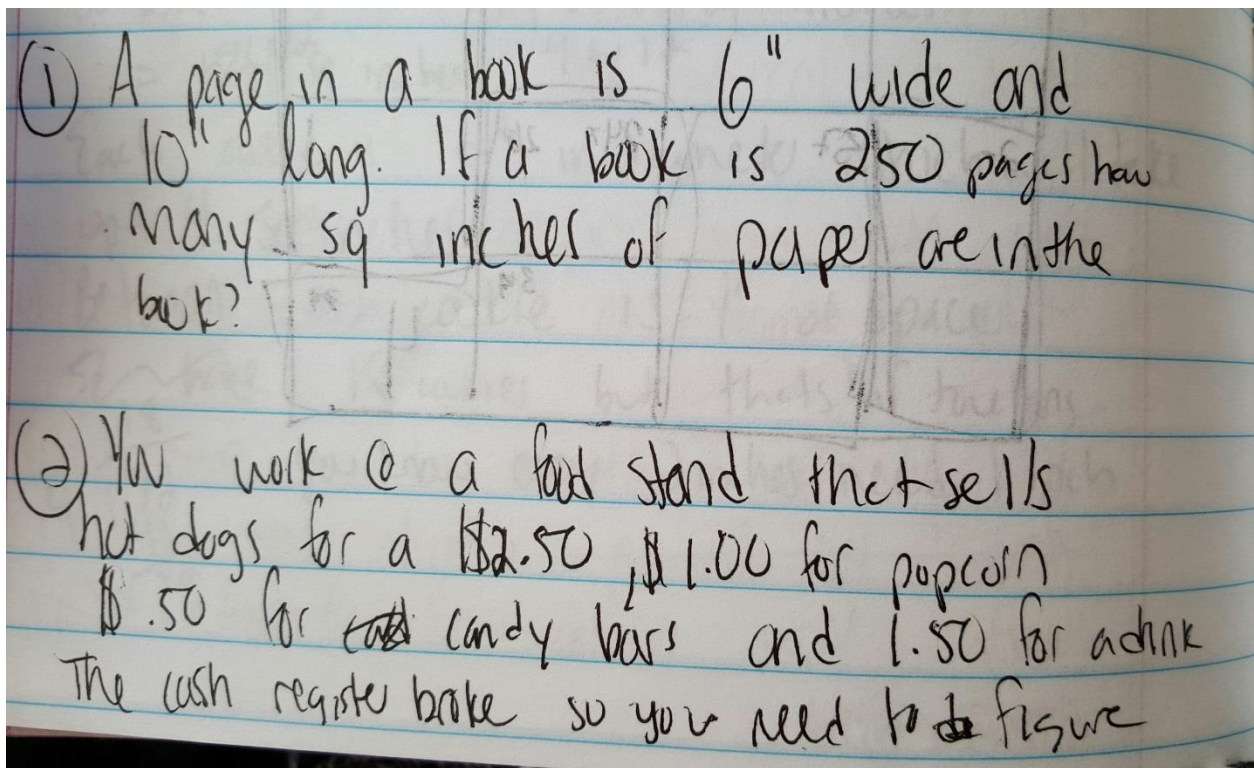 ① A page in a book is 6" wide and
10" long. If a book is 250 pages how
many sq inches of paper are in the
book?
② You work @ a food stand that sells
hot dogs for a $2.50, $1.00 for popcorn
$.50 for candy bars and 1.50 for a drink
The cash register broke so you need to figure